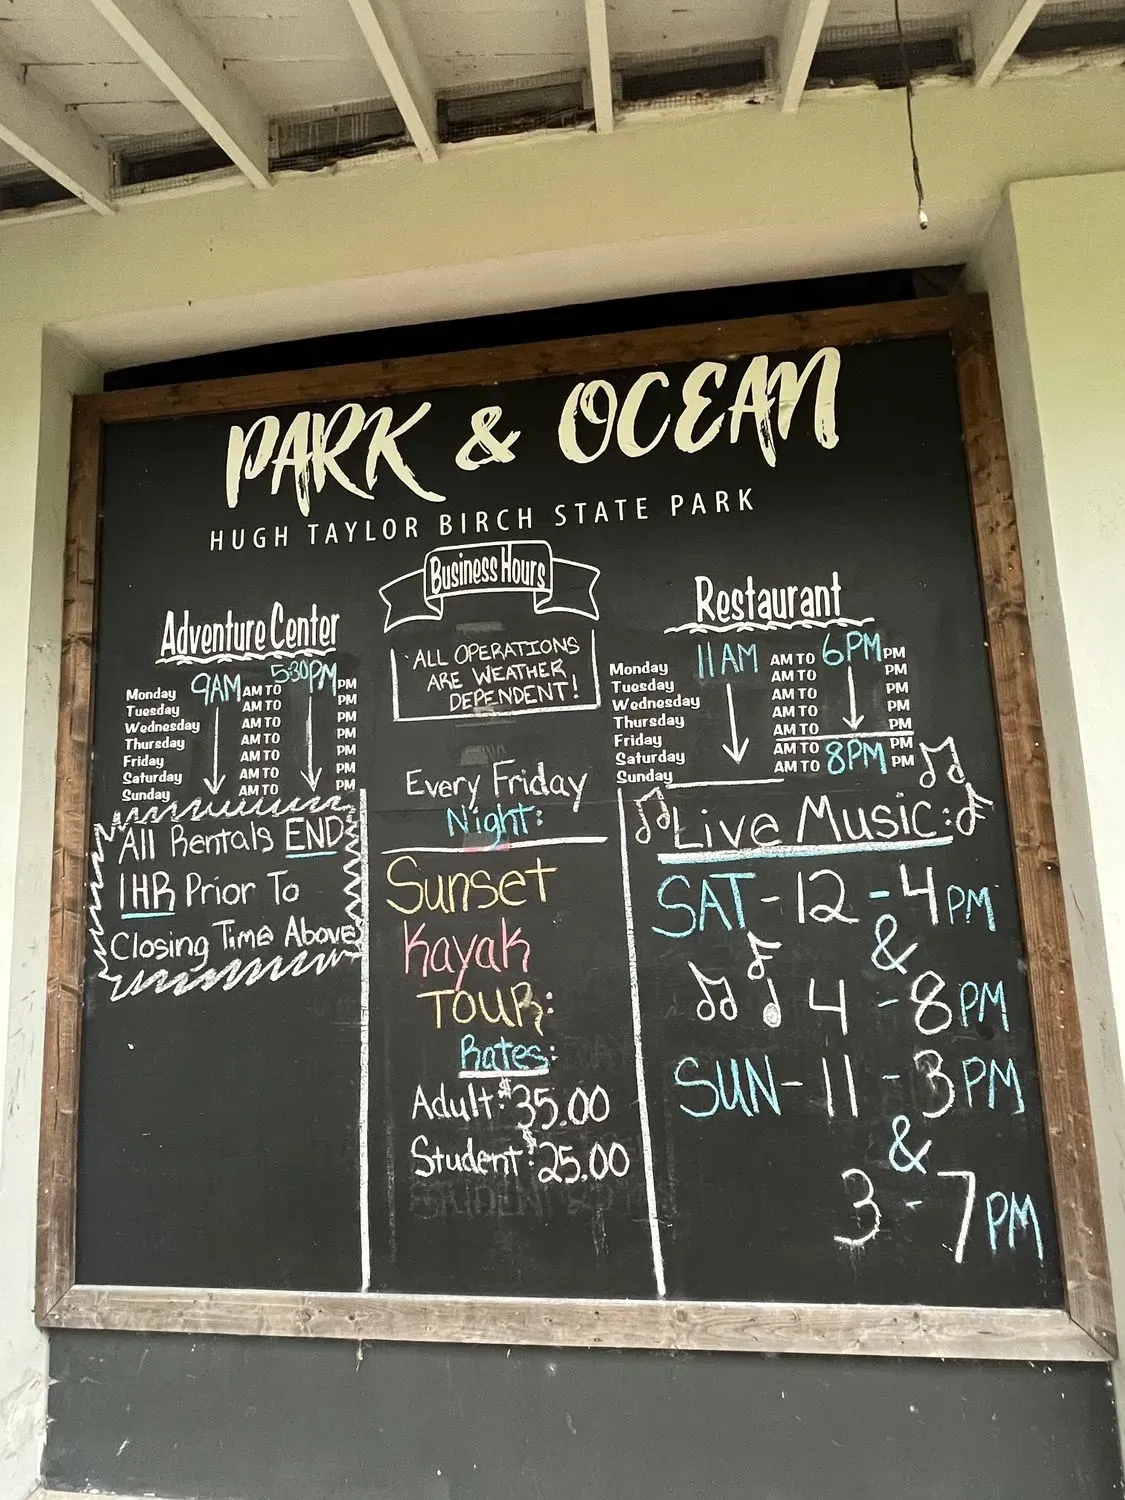 PARK & OCEAN
HUGH TAYLOR BIRCH STATE PARK
Business Hours
ALL OPERATIONS
ARE WEATHER
DEPENDENT!
Adventure Center
Monday 9AM AM TO 5:30PM PM
Tuesday AM TO PM
Wednesday AM TO PM
Thursday AM TO PM
Friday AM TO PM
Saturday AM TO PM
Sunday AM TO PM
All Rentals END
1HR Prior To
Closing Time Above
Every Friday
Night:
Sunset
Kayak
TOUR:
Rates:
Adult: $35.00
Student: $25.00
Restaurant
Monday 11AM AM TO 6PM PM
Tuesday AM TO PM
Wednesday AM TO PM
Thursday AM TO PM
Friday AM TO PM
Saturday AM TO 8PM PM
Sunday AM TO PM
Live Music:
SAT - 12 - 4PM
&
4 - 8PM
SUN - 11 - 3PM
&
3 - 7PM